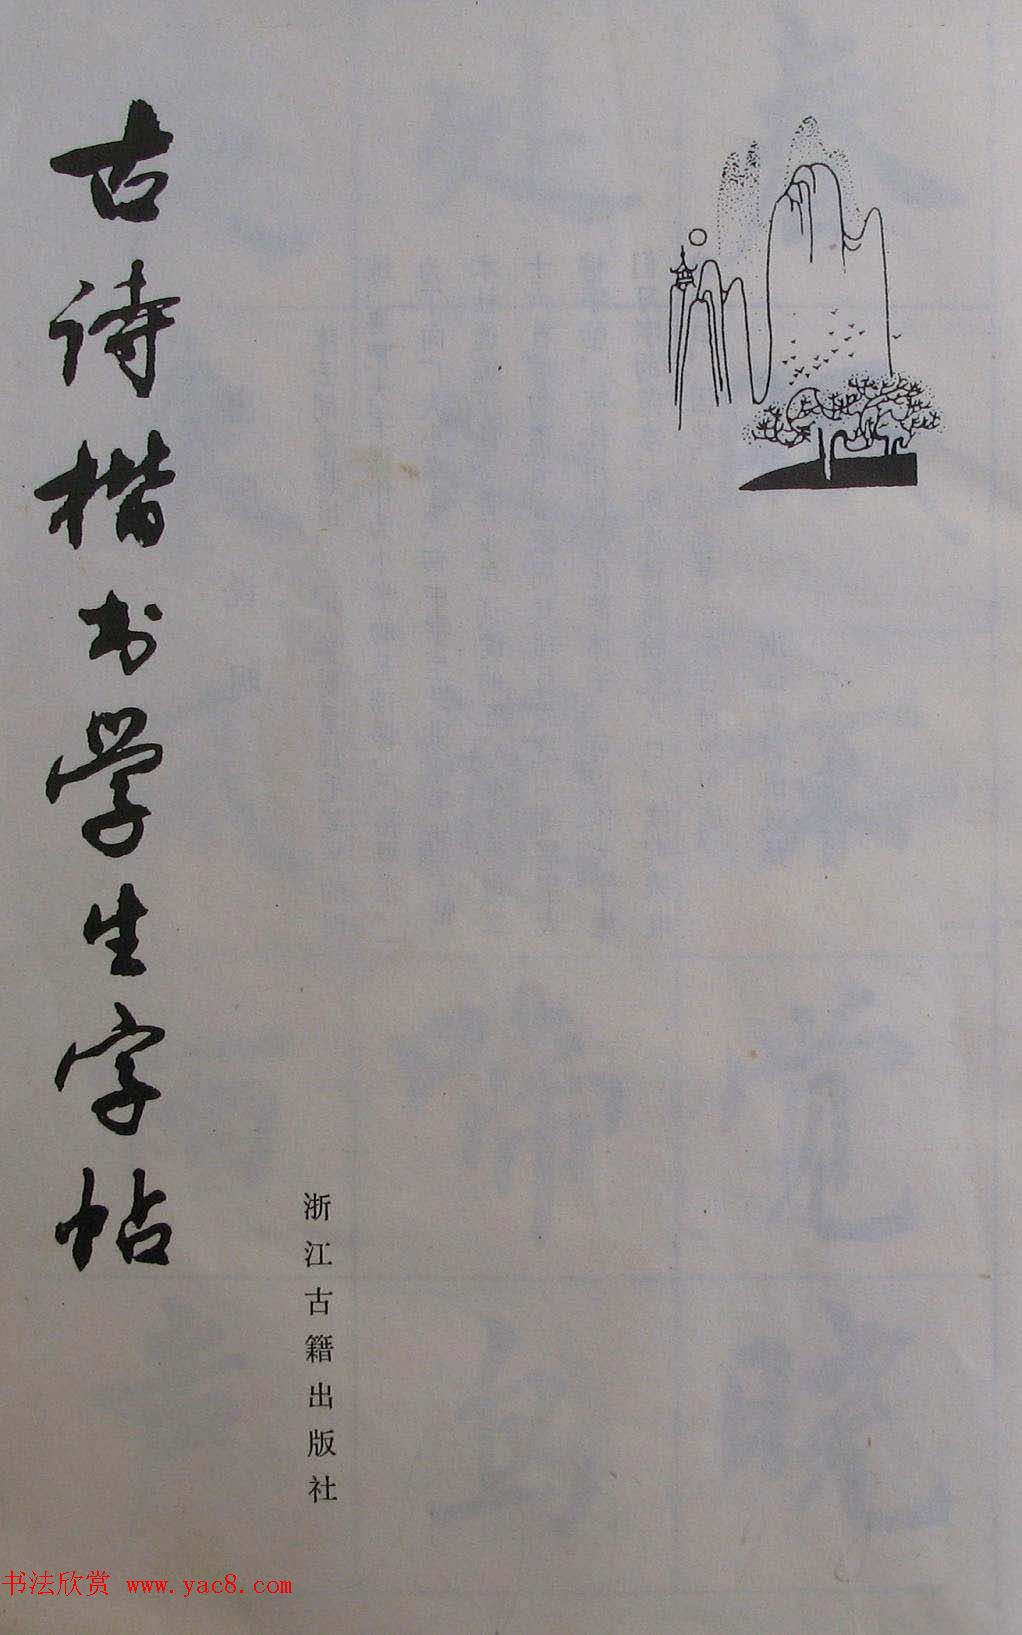 古诗楷书学生字帖
浙江古籍出版社
书法欣赏 www.yac8.com